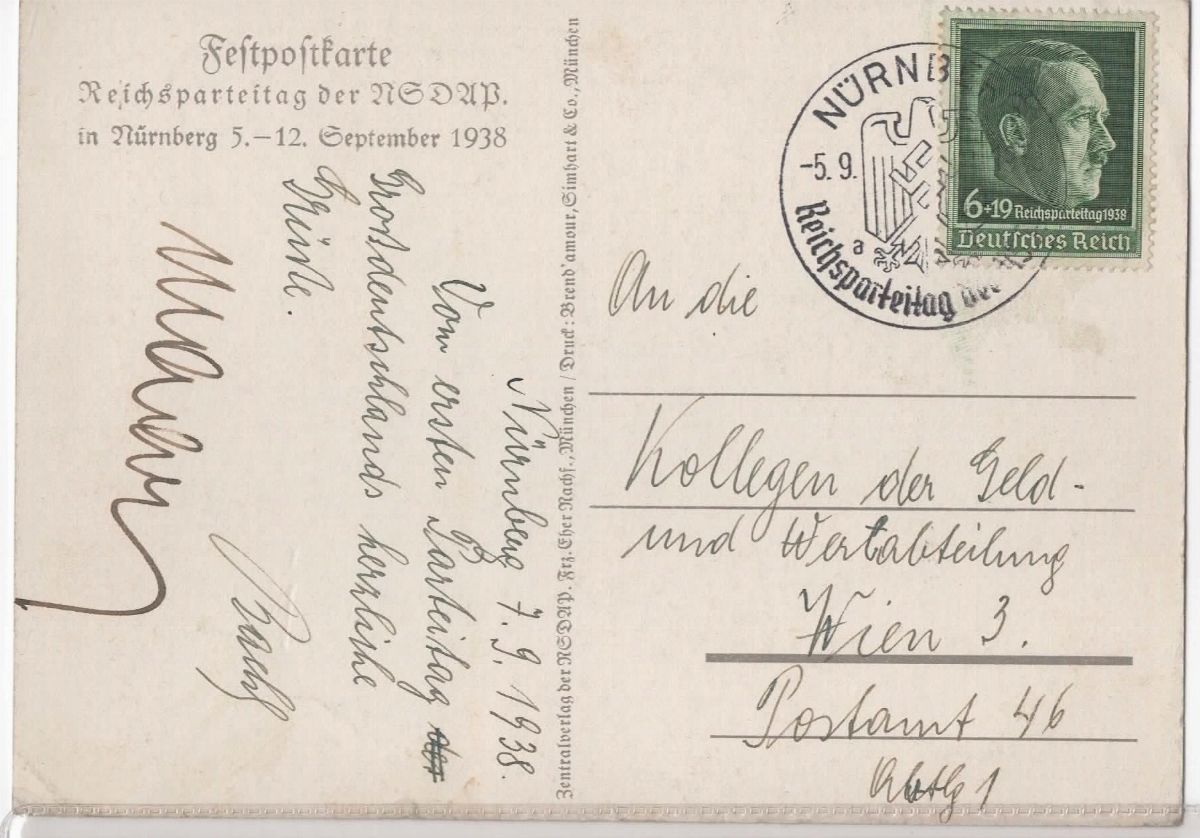 Festpostkarte
Reichsparteitag der NSDAP.
in Nürnberg 5.–12. September 1938
Nürnberg 7.9.1938.
Vom ersten Parteitag der
Grossdeutschlands herzliche
Grüsse.
Zentralverlag der NSDAP. Frz. Eher Nachf., München / Druck: Brend'amour, Simhart & Co., München
NÜRNBE
-5.9.
a
Reichsparteitag der
6+19 Reichsparteitag 1938
Deutsches Reich
An die
Kollegen der Geld-
und Wertabteilung
Wien 3.
Postamt 46
Abtlg 1